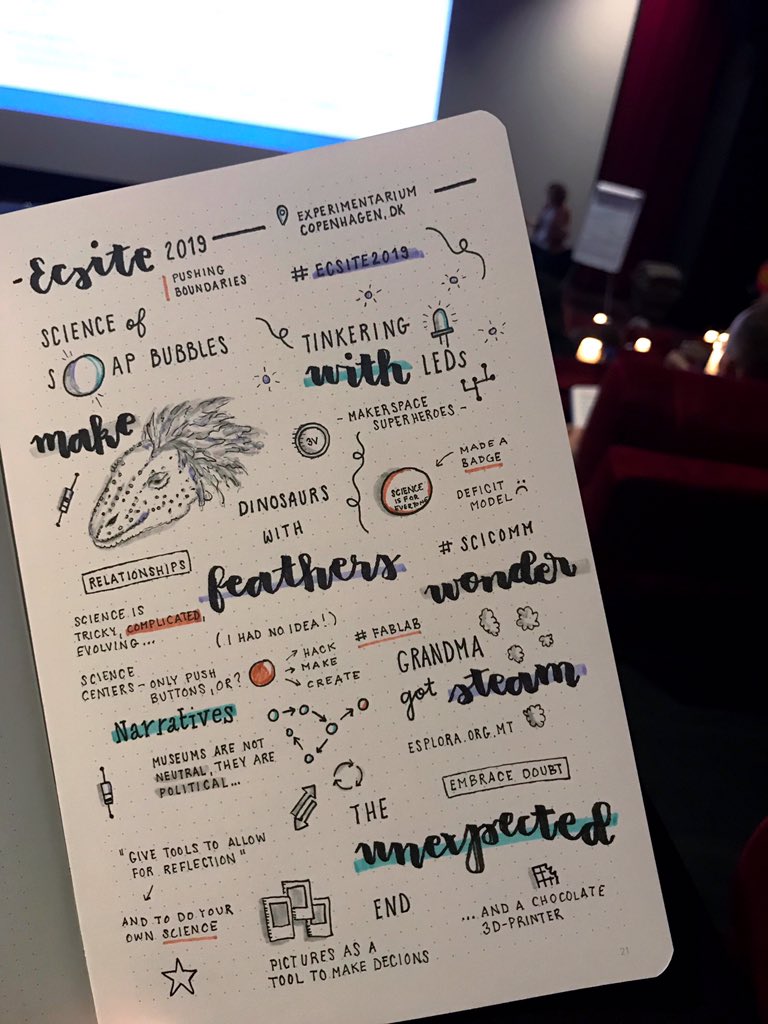 -Ecsite 2019
EXPERIMENTARIUM
COPENHAGEN, DK
PUSHING
BOUNDARIES
# ECSITE2019
SCIENCE of
SOAP BUBBLES
TINKERING
with LEDS
make
- MAKERSPACE
SUPERHEROES -
3V
MADE A
BADGE
SCIENCE
IS FOR
EVERYONE
DEFICIT
MODEL
DINOSAURS
WITH
feathers
# SCICOMM
wonder
RELATIONSHIPS
SCIENCE IS
TRICKY, COMPLICATED,
EVOLVING...
(I HAD NO IDEA!)
# FABLAB
SCIENCE
CENTERS - ONLY PUSH
BUTTONS, OR?
HACK
MAKE
CREATE
GRANDMA
got steam
ESPLORA.ORG.MT
Narratives
MUSEUMS ARE NOT
NEUTRAL, THEY ARE
POLITICAL...
EMBRACE DOUBT
THE
unexpected
"GIVE TOOLS TO ALLOW
FOR REFLECTION"
AND TO DO YOUR
OWN SCIENCE
END
...AND A CHOCOLATE
3D-PRINTER
PICTURES AS A
TOOL TO MAKE DECIONS
21